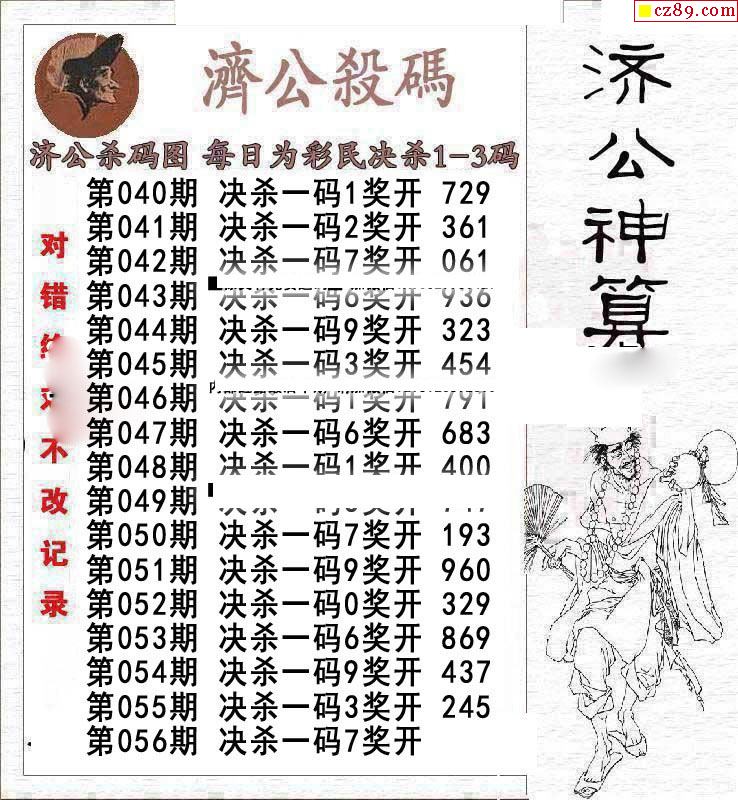 cz89.com
濟公殺碼
济公杀码图 每日为彩民决杀1-3码
第040期 决杀一码1奖开 729
第041期 决杀一码2奖开 361
第042期 决杀一码7奖开 061
第043期 决杀一码6奖开 936
第044期 决杀一码9奖开 323
第045期 决杀一码3奖开 454
第046期 决杀一码1奖开 791
第047期 决杀一码6奖开 683
第048期 决杀一码1奖开 400
第049期 决杀一码 奖开
第050期 决杀一码7奖开 193
第051期 决杀一码9奖开 960
第052期 决杀一码0奖开 329
第053期 决杀一码6奖开 869
第054期 决杀一码9奖开 437
第055期 决杀一码3奖开 245
第056期 决杀一码7奖开
对错 不改记录
济公神算